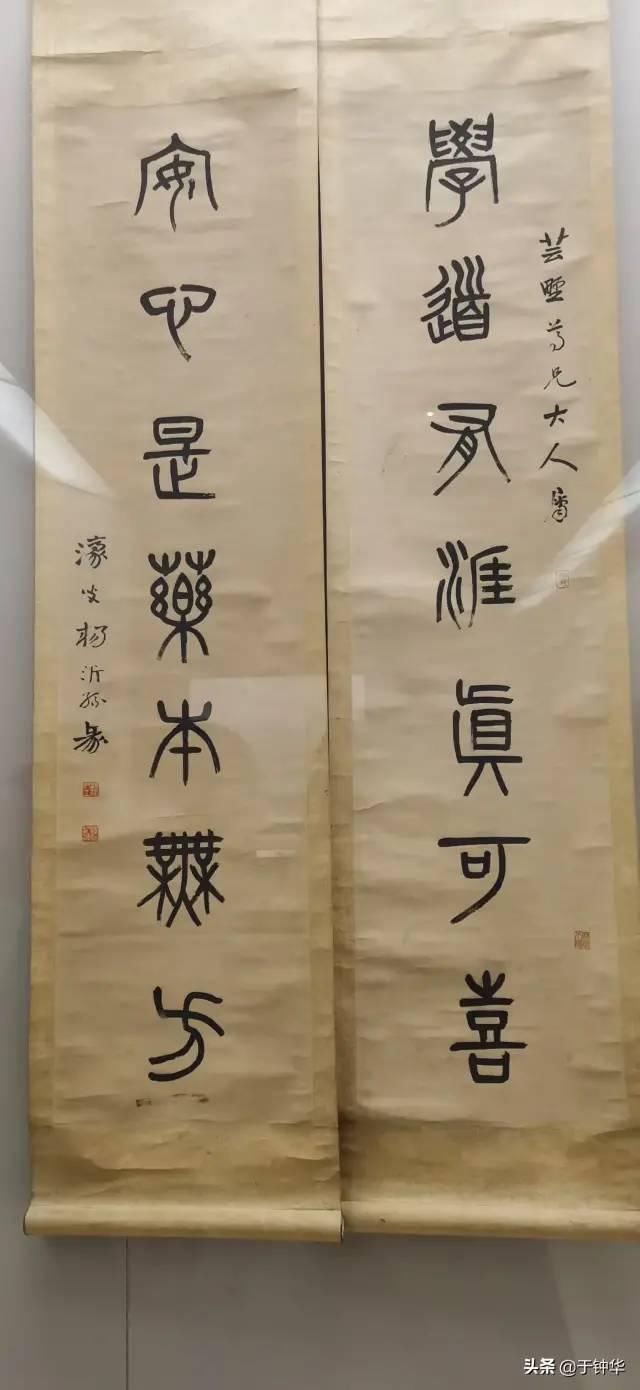 學道有涯眞可喜
芸尊兄大人屬
安心是藥本無方
濠叟楊沂孫篆
头条 @于钟华